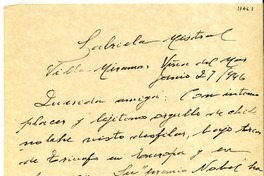 Gabriela Mistral
Villa Miramar, Viña del Mar
Junio 27/946
Querida amiga: Con intenso
placer y legítimo orgullo de chile-
na la he visto desfilar, bajo Arco
de Triunfo en Europa y en
Su "premio Nobel" ha